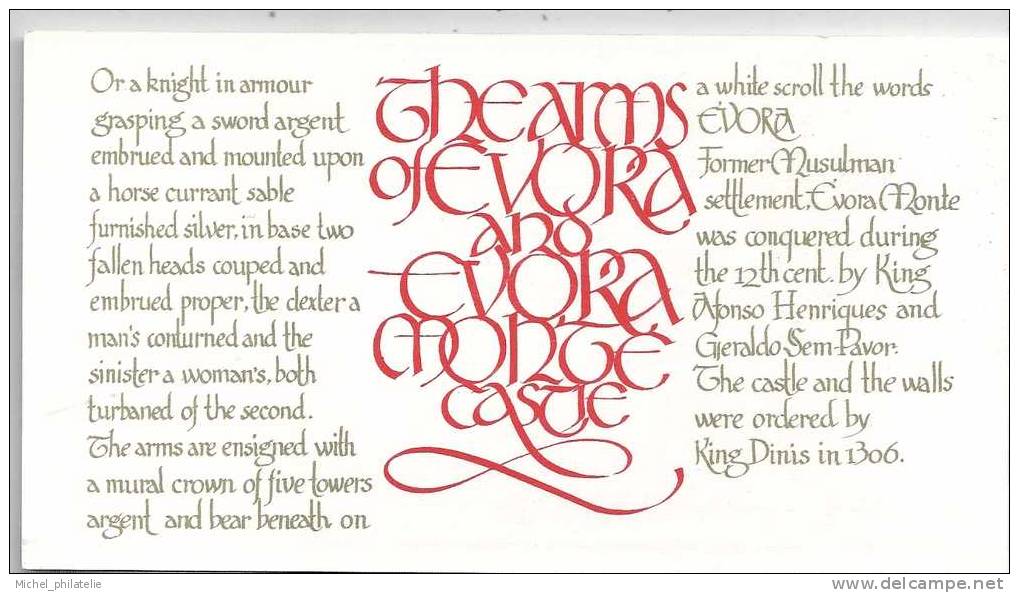 Or a knight in armour
grasping a sword argent
embrued and mounted upon
a horse currant sable
furnished silver, in base two
fallen heads couped and
embrued proper, the dexter a
man's conturned and the
sinister a woman's, both
turbaned of the second.
The arms are ensigned with
a mural crown of five towers
argent and bear beneath on
The arms
of EVORA
and
EVORA
MONTE
castle
a white scroll the words
ÉVORA
Former Musulman
settlement, Évora Monte
was conquered during
the 12th cent. by King
Afonso Henriques and
Gjeraldo Sem-Pavor.
The castle and the walls
were ordered by
King Dinis in 1306.
Michel_philatelie
www.delcampe.net